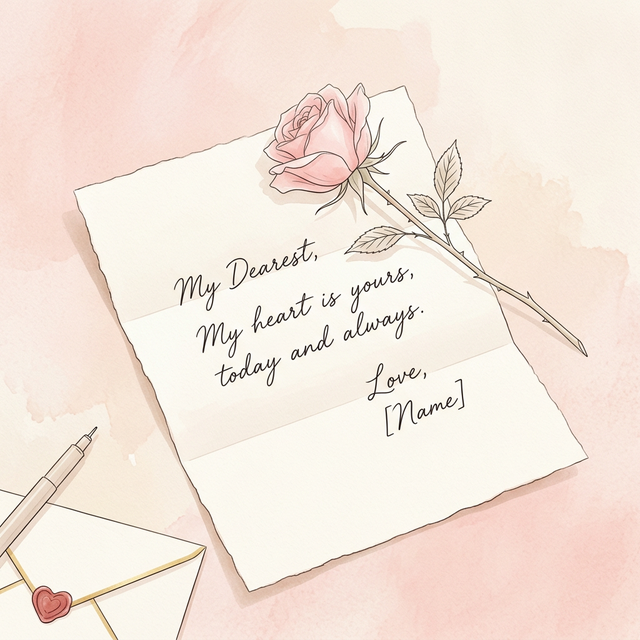 My Dearest,
My heart is yours,
today and always.
Love,
[Name]